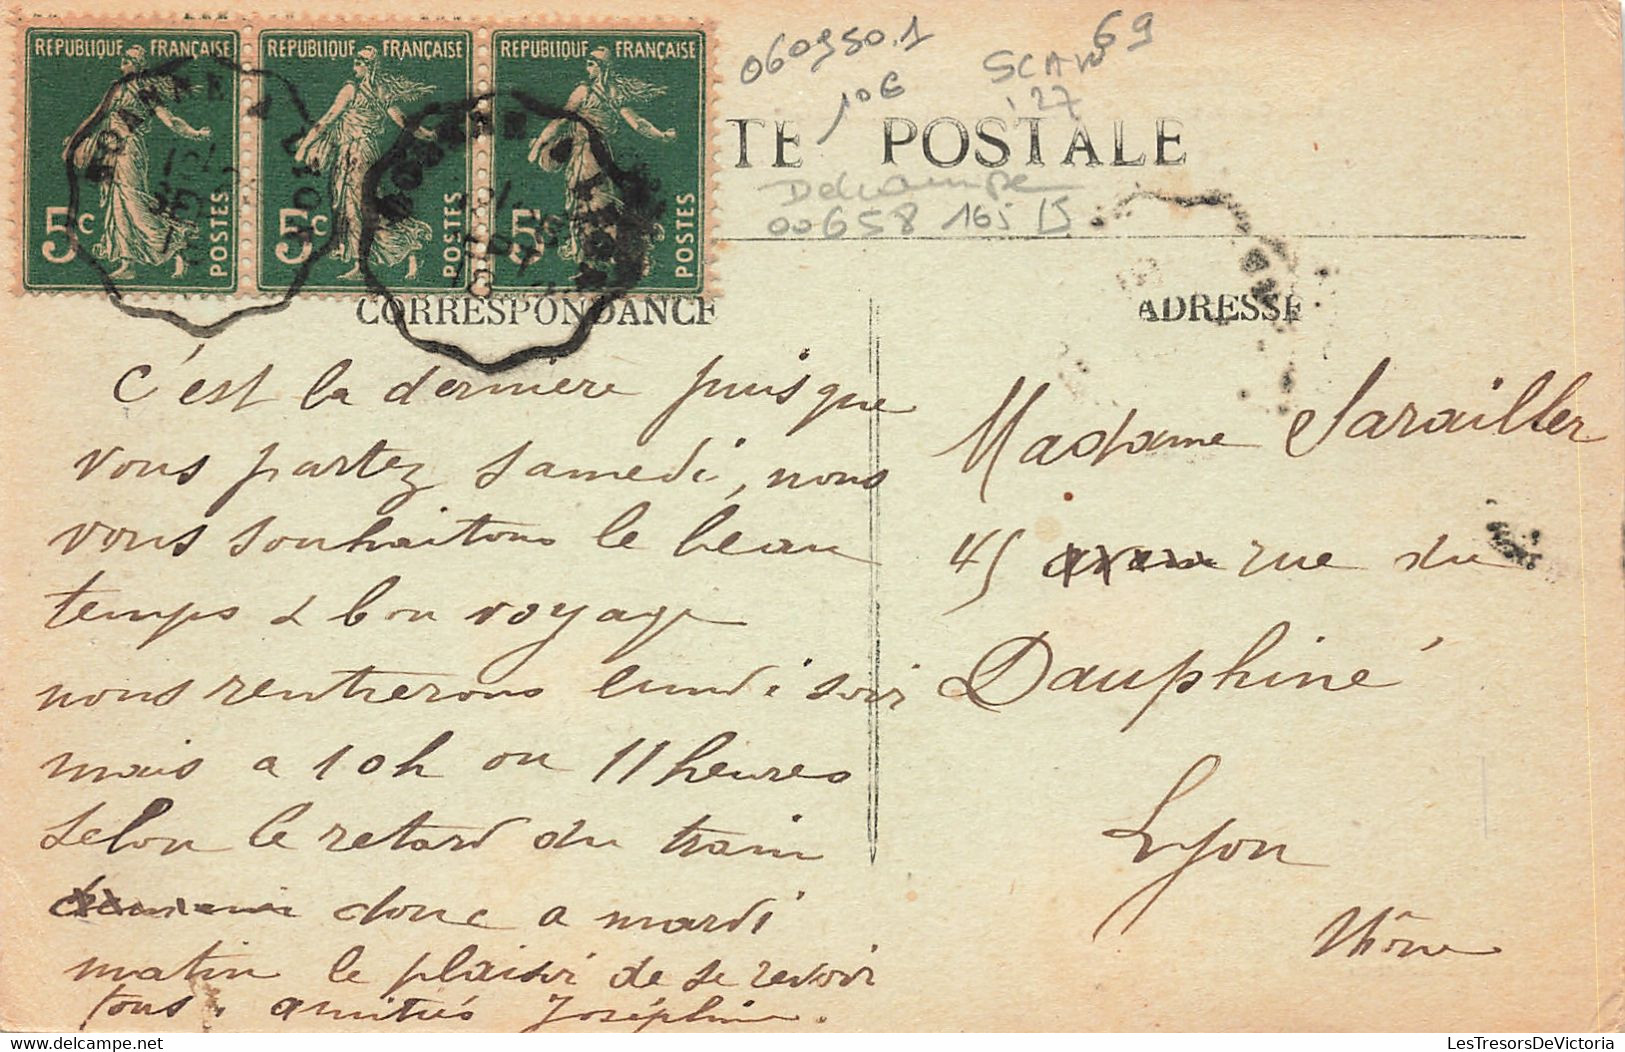 REPUBLIQUE FRANÇAISE REPUBLIQUE FRANÇAISE REPUBLIQUE FRANÇAISE
5c POSTES 5c POSTES 5c POSTES
ROANNE A LYON
ROANNE A LYON
060950.1
10€
SCAN 69
27
TE POSTALE
00658 165
CORRESPONDANCE
ADRESSE
C'est la derniere puisque
vous partez samedi, nous
vous souhaitons le beau
temps & bon voyage
nous rentrerons lundi soir
mais a 10h ou 11 heures
selon le retard du train
donc a mardi
matin le plaisir de se revoir
tous. amitiés Joséphine.
Madame Sarailler
45 rue du
Dauphiné
Lyon
Rhône
LesTresorsDeVictoria